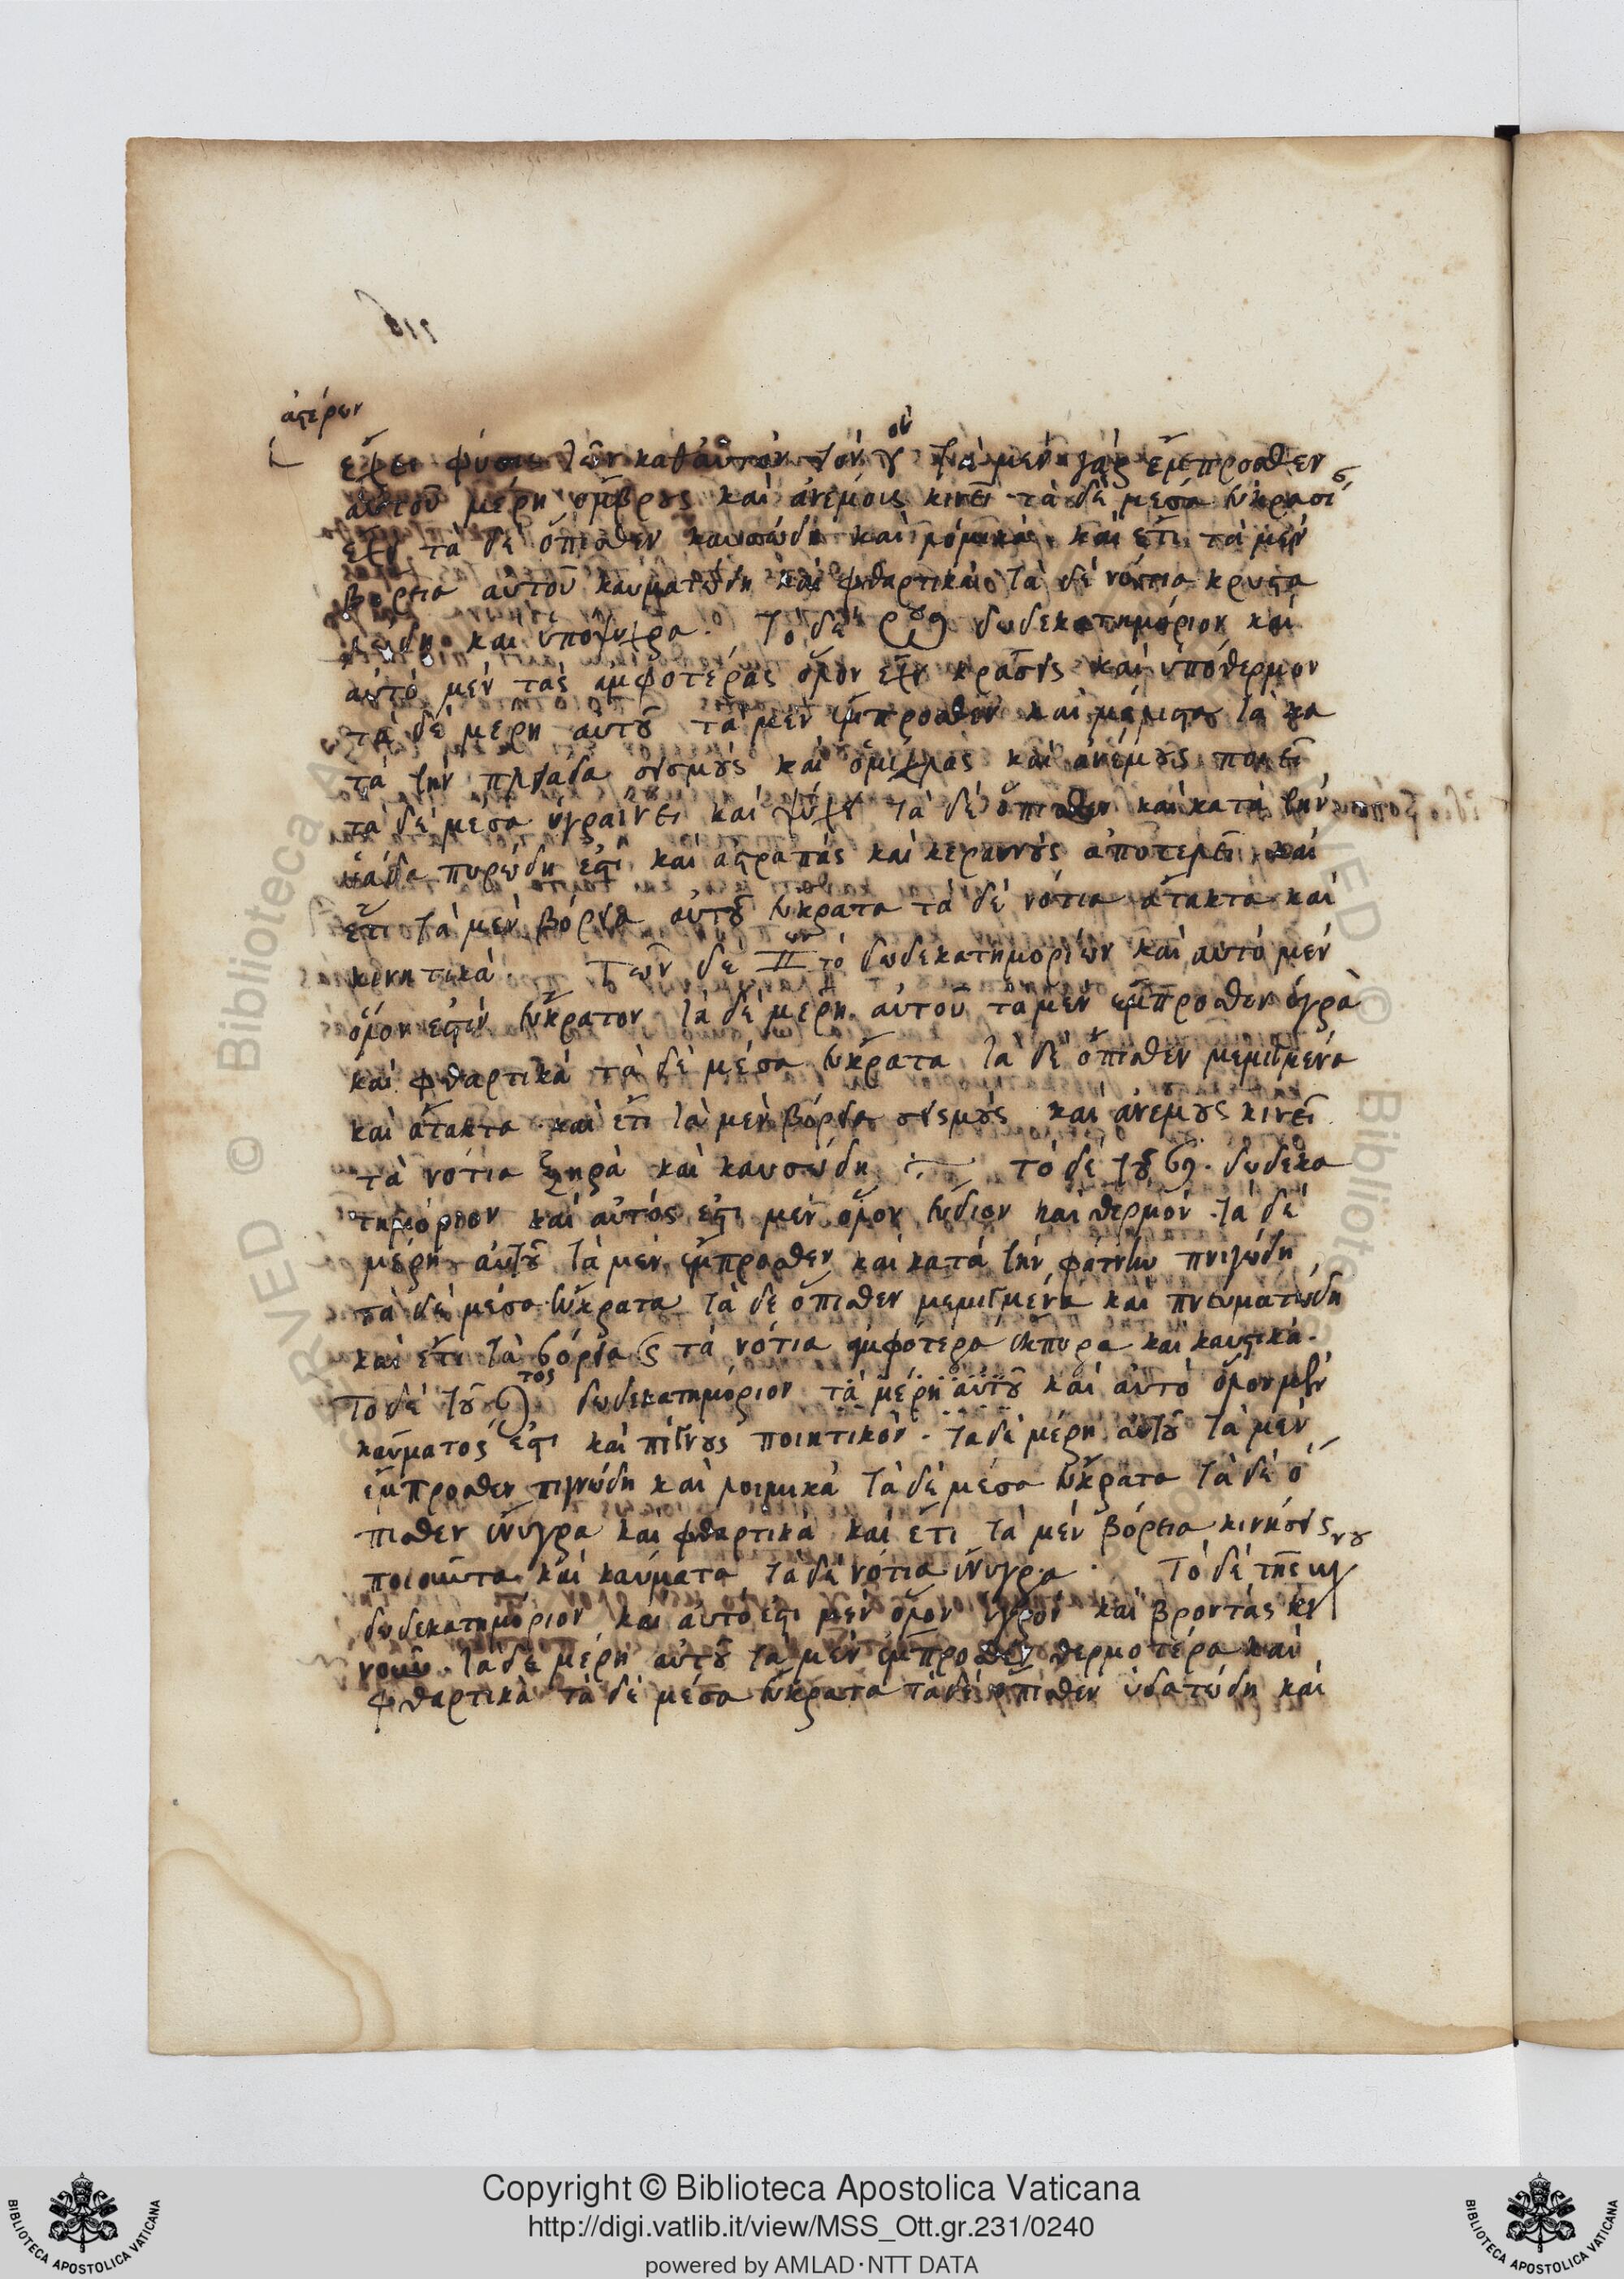 ἀστέρων
ἔχει φύσιν τῶν καθ αὐτὸν τὸν γ τὰ μὲν γὰρ ἔμπροσθεν
αὐτοῦ μέρη ὄμβρους καὶ ἀνέμους κινεῖ τὰ δὲ μέσα εὔκρασί
ἔχει τὰ δὲ ὄπισθεν καυσώδη καὶ λοιμικά· καὶ ἔτι τὰ μὲν
βόρεια αὐτοῦ καυματώδη καὶ φθαρτικὰ· τὰ δὲ νότια κρυστα
λώδη καὶ ὑπόψυχρα. Τὸ δὲ δωδεκατημόριον καὶ
αὐτὸ μὲν τὰς ἀμφοτέρας ὅλον ἔχει κράσεις καὶ ὑπόθερμον
τὰ δὲ μέρη αὐτοῦ τὰ μὲν ἔμπροσθεν καὶ μάλιστα τὰ κα
τὰ τὴν πλειάδα σεισμοὺς καὶ ὁμίχλας καὶ ἀνέμους ποιεῖ
τὰ δὲ μέσα ὑγραίνει καὶ ψύχει τὰ δὲ ὄπισθεν καὶ κατὰ τὴν
ὑάδα πυρώδη ἐστὶ καὶ ἀστραπὰς καὶ κεραυνοὺς ἀποτελεῖ καὶ
ἔτι τὰ μὲν βόρεια αὐτοῦ εὔκρατα τὰ δὲ νότια ἄτακτα καὶ
κινητικά. Τῶν δὲ ♊ων τὸ δωδεκατημορίων καὶ αὐτὸ μὲν
ὅλον ἐστὶν εὔκρατον τὰ δὲ μέρη αὐτοῦ τὰ μὲν ἔμπροσθεν ὑγρὰ
καὶ φθαρτικὰ τὰ δὲ μέσα εὔκρατα τὰ δὲ ὄπισθεν μεμιγμένα
καὶ ἄτακτα καὶ ἔτι τὰ μὲν βόρεια σεισμοὺς καὶ ἀνέμους κινεῖ
τὰ νότια ξηρὰ καὶ καυσώδη ⁘ τὸ δὲ τοῦ ♋. δωδεκα
τημόριον καὶ αὐτὸς ἐστι μὲν ὅλον εὔδιον καὶ θερμὸν. τὰ δὲ
μέρη αὐτοῦ τὰ μὲν ἔμπροσθεν καὶ κατὰ τὴν φάτνην πνιγώδη
τὰ δὲ μέσα εὔκρατα τὰ δὲ ὄπισθεν μεμιγμένα καὶ πνευματώδη
καὶ ἔτι τὰ βόρεια καὶ τὰ νότια ἀμφότερα ἔκπυρα καὶ καυστικὰ.
Τὸ δὲ τοῦ ♌τος δωδεκατημόριον τὰ μέρη αὐτοῦ καὶ αὐτὸ ὅλον μὲν
καύματός ἐστι καὶ πίγνους ποιητικὸν. τὰ δὲ μέρη αὐτοῦ τὰ μὲν
ἔμπροσθεν πιγνώδη καὶ λοιμικὰ τὰ δὲ μέσα εὔκρατα τὰ δὲ ὄ
πισθεν ἔνυγρα καὶ φθαρτικὰ καὶ ἔτι τὰ μὲν βόρεια κινήσεις
ποιοῦντα καὶ καύματα τὰ δὲ νότια ἔνυγρα · Τὸ δὲ τῆς ♍νου
δωδεκατημόριον καὶ αὐτό ἐστι μὲν ὅλον ὑγρὸν καὶ βροντὰς κι
νοῦν. τὰ δὲ μέρη αὐτοῦ τὰ μὲν ἔμπροσθεν θερμότερα καὶ
φθαρτικὰ τὰ δὲ μέσα εὔκρατα τὰ δὲ ὄπισθεν ὑδατώδη καὶ
Copyright © Biblioteca Apostolica Vaticana
http://digi.vatlib.it/view/MSS_Ott.gr.231/0240
powered by AMLAD·NTT DATA
BIBLIOTECA APOSTOLICA VATICANA
BIBLIOTECA APOSTOLICA VATICANA